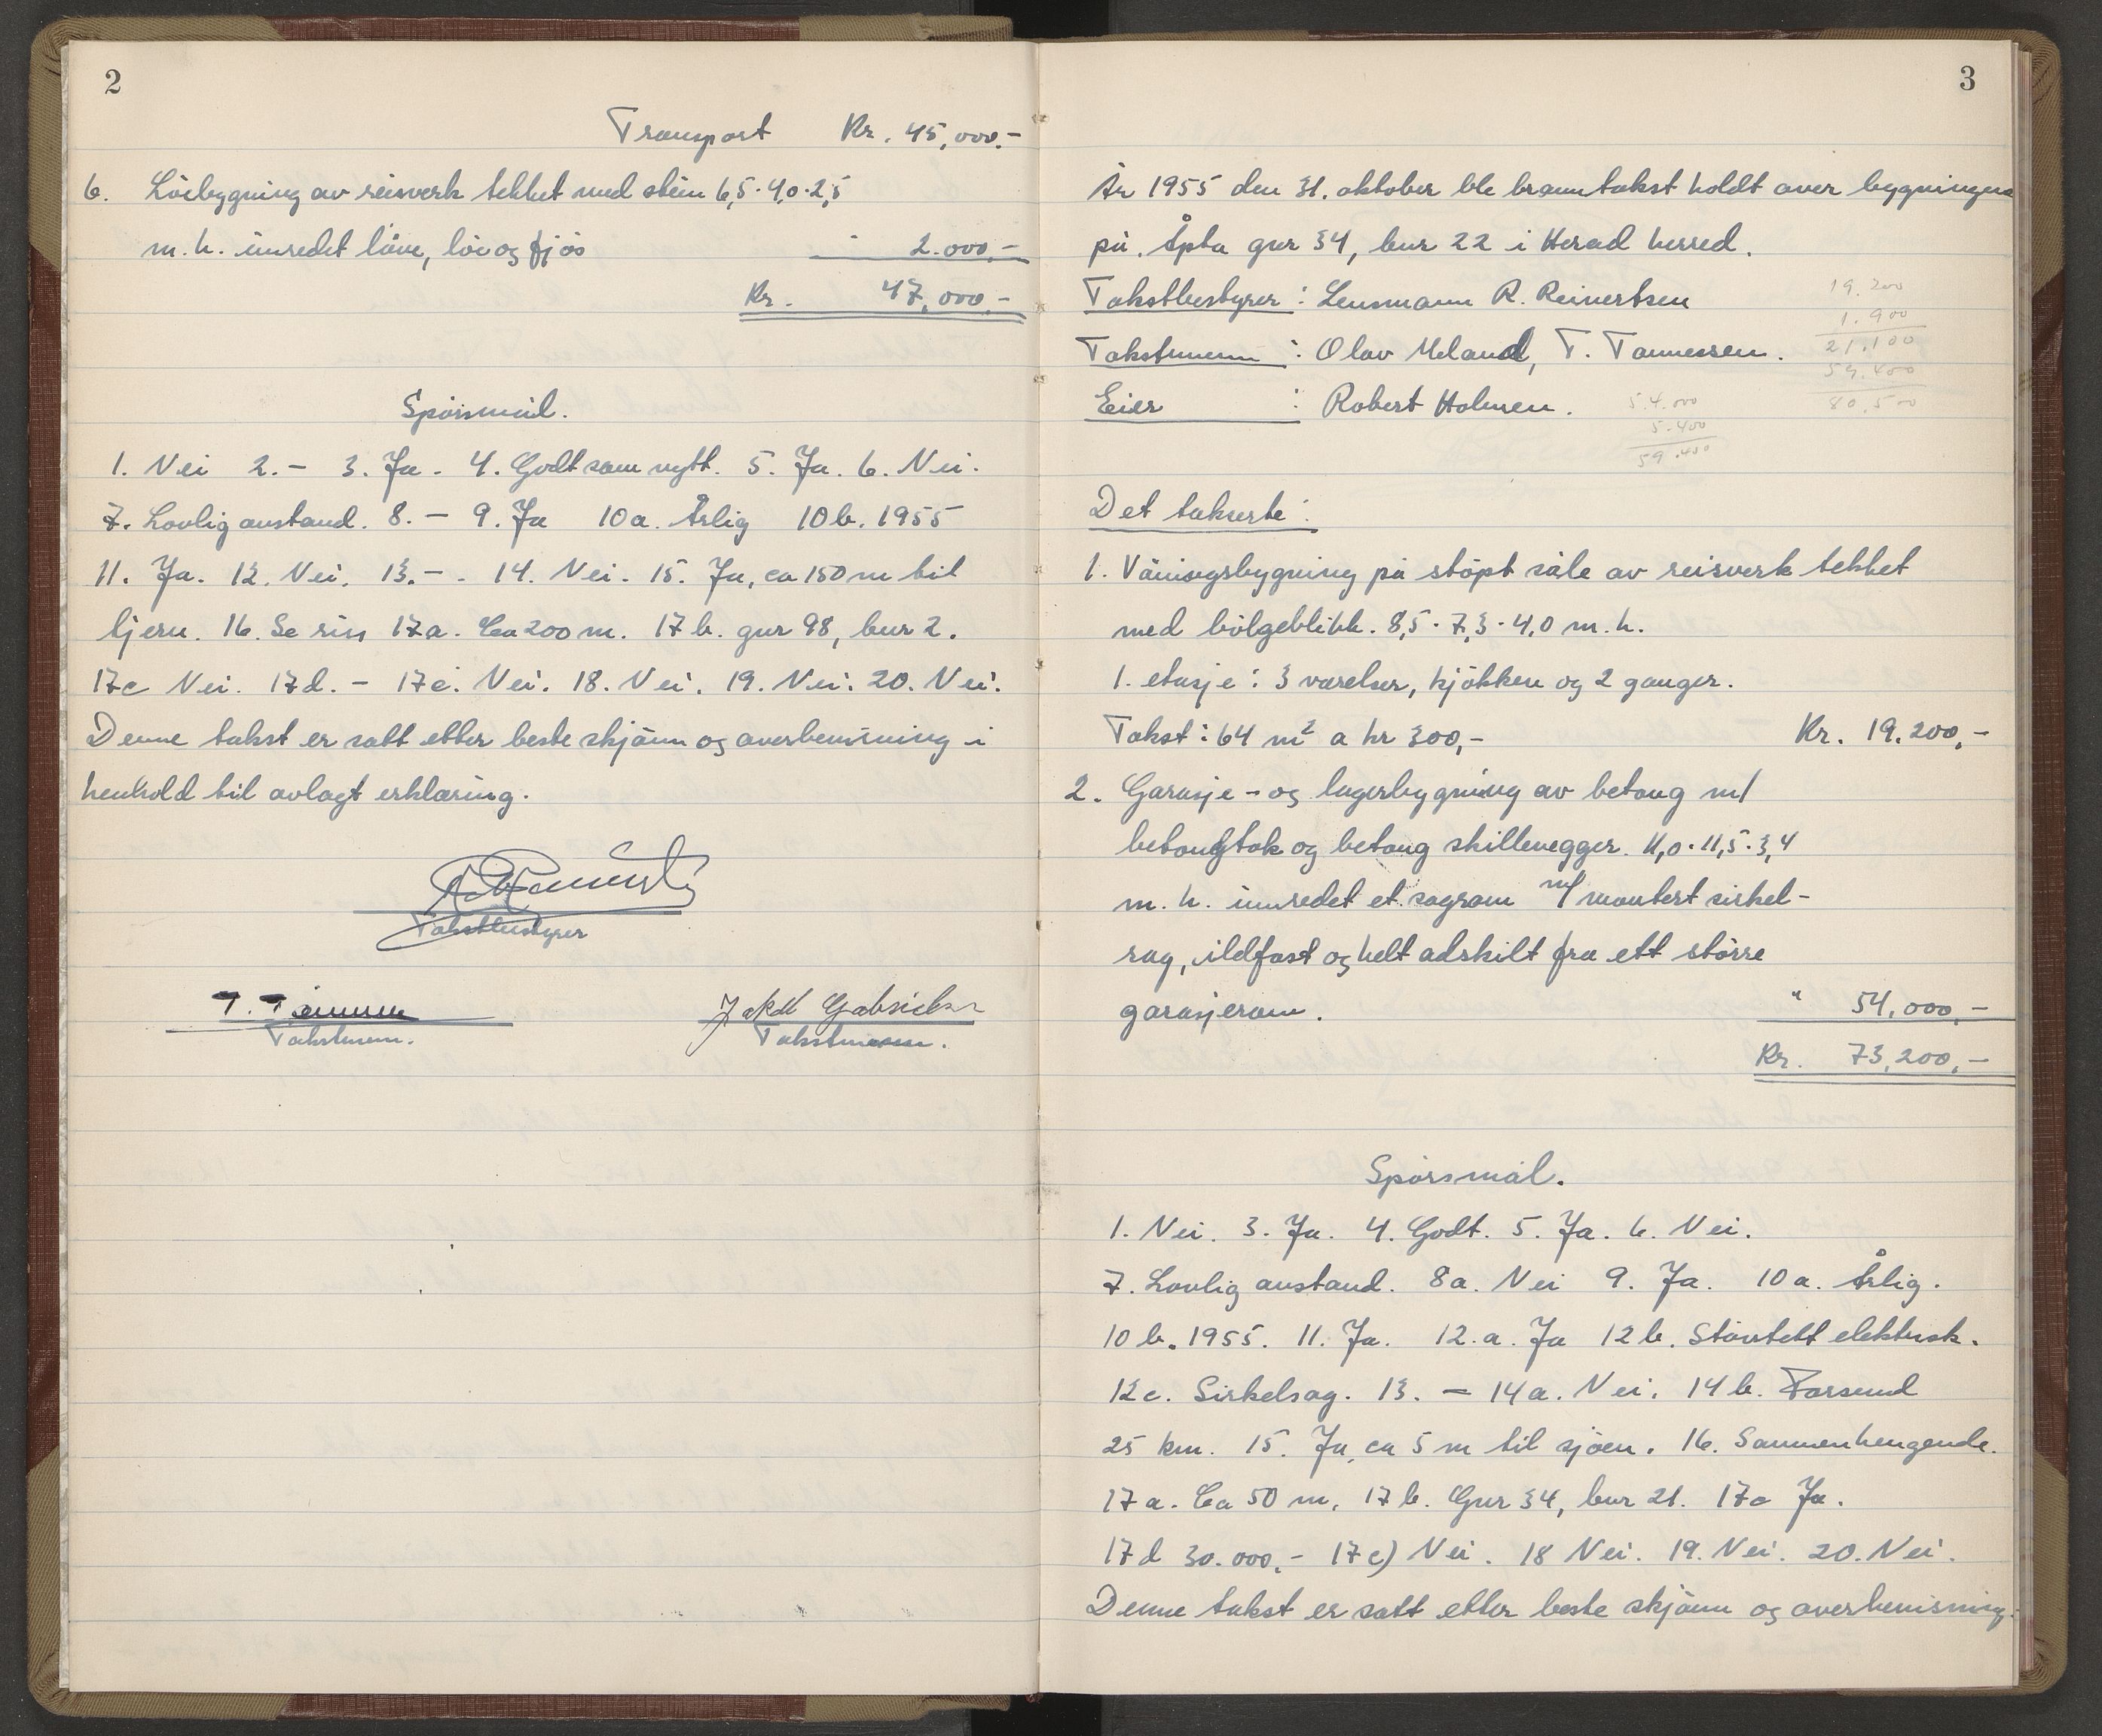 2
Transport Kr. 45,000.-
6. Löebygning av reisverk tekket med stein 6,5·4,0·2,5
m.h. innredet låve, löe og fjös " 2.000,-
Kr. 47,000,-
Spörsmål.
1. Nei 2. - 3. Ja. 4. Godt som nytt. 5. Ja. 6. Nei.
7. Lovlig avstand. 8. - 9. Ja 10a. Årlig 10b. 1955
11. Ja. 12. Nei. 13. -. 14. Nei. 15. Ja, ca 150 m til
tjern. 16. Se riss 17a. Ca 200 m. 17b. gnr 98, bnr 2.
17c Nei. 17d. - 17e. Nei. 18. Nei. 19. Nei. 20. Nei.
Denne takst er satt etter beste skjönn og overbevisning i
henhold til avlagt erklæring.
Takstbestyrer
Takstmann.
Jakob Gabrielsen
Takstmann.
3
År 1955 den 31. oktober ble branntakst holdt over bygningene
på Åpta gnr 34, bnr 22 i Herad herred.
Takstbestyrer : Lensmann R. Reinertsen
Takstmenn : Olav Meland, T. Tønnessen.
Eier : Robert Holmen.
19.200
1.900
21.100
59.400
80.500
54.000
5.400
59.400
Det takserte :
1. Våningsbygning på stöpt såle av reisverk tekket
med bölgeblikk. 8,5·7,3·4,0 m.h.
1. etasje : 3 værelser, kjökken og 2 ganger.
Takst : 64 m² a kr 300,- Kr. 19.200,-
2. Garasje- og lagerbygning av betong m/
betongtak og betong skillevegger. 11,0·11,5·3,4
m.h. innredet et sagrom m/ montert sirkel-
sag, ildfast og helt adskilt fra ett större
garasjerom. " 54,000,-
Kr. 73,200,-
Spörsmål.
1. Nei. 3. Ja. 4. Godt. 5. Ja. 6. Nei.
7. Lovlig avstand. 8a. Nei 9. Ja. 10a. Årlig.
10b. 1955. 11. Ja. 12.a. Ja 12b. Stövtett elektrisk.
12c. Sirkelsag. 13. - 14a. Nei. 14b. Farsund
25 km. 15. Ja, ca 5 m til sjöen. 16. Sammenhengende.
17a. Ca 50 m. 17b. Gnr 34, bnr 21. 17c Ja.
17d 30.000,- 17e) Nei. 18 Nei. 19. Nei. 20. Nei.
Denne takst er satt etter beste skjönn og overbevisning